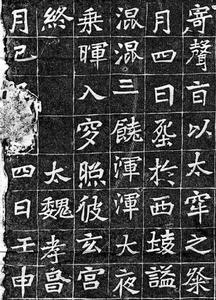 寄聲百以太牢之祭
月四日塟於西堎謚
混混三饒渾渾大夜
乘暉入穸照彼玄宮
終 太魏孝昌
月己 四日壬申